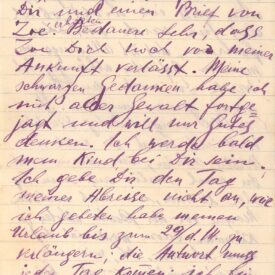 Dir und einen Brief von
Zoe erhalten. Bedaure sehr, dass
Zoe Dich noch vor meiner
Ankunft verlässt. Meine
schwarzen Gedanken habe ich
mit aller Gewalt fortge-
jagt und will nur Gutes
denken. Ich werde bald
mein Kind bei Dir sein.
Ich gebe Dir den Tag
meiner Abreise nicht an, wie
ich gebeten habe meinen
Urlaub bis zum 29/d.M. zu
verlängern, die Antwort muss
jeden Tag kommen